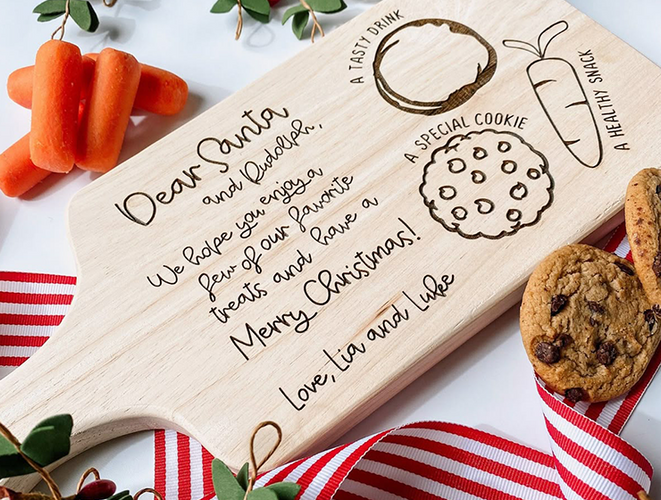 Dear Santa
and Rudolph,
We hope you enjoy a
few of our favorite
treats and have a
Merry Christmas!
Love, Lia and Luke
A TASTY DRINK
A SPECIAL COOKIE
A HEALTHY SNACK